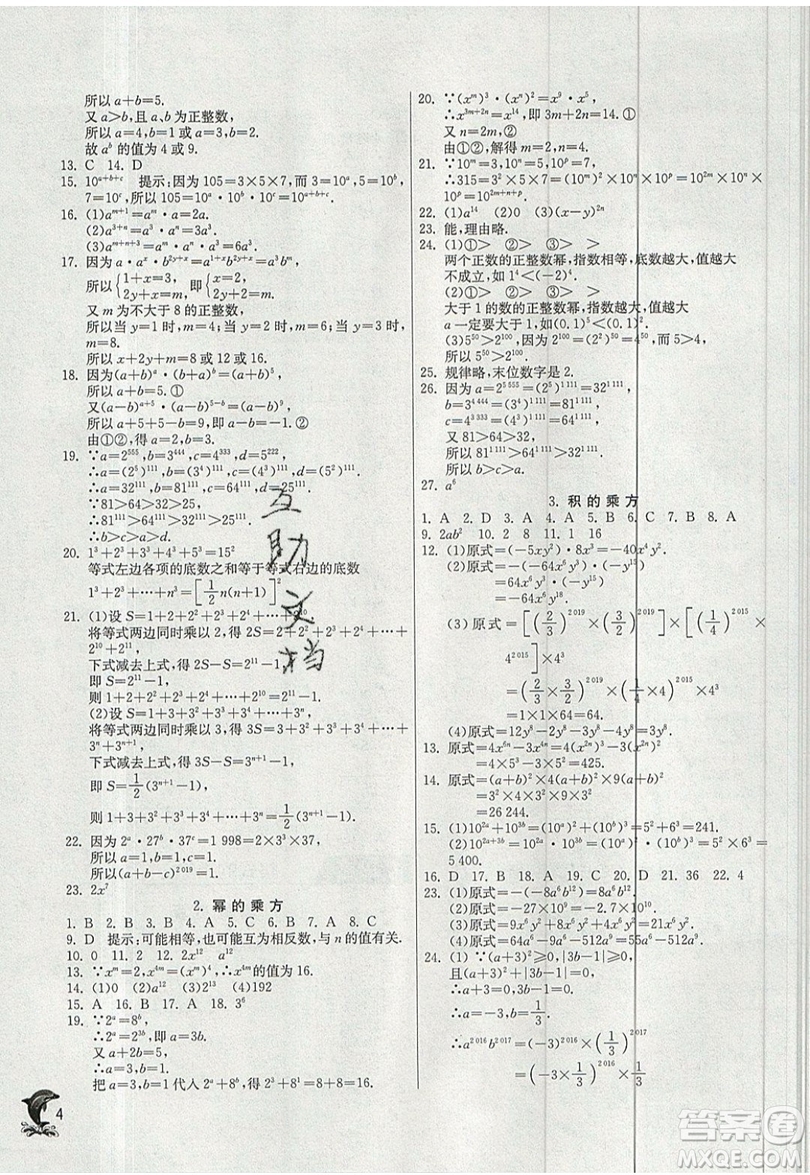 所以a+b=5.
又a>b,且a、b为正整数,
所以a=4,b=1或a=3,b=2.
故a^b的值为4或9.
13. C 14. D
15. 10^{a+b+c} 提示:因为105=3×5×7,而3=10^a,5=10^b,
7=10^c,所以105=10^a·10^b·10^c=10^{a+b+c}.
16. (1)a^{m+1}=a^m·a=2a.
(2)a^{3+n}=a^3·a^n=3a^3.
(3)a^{m+n+3}=a^m·a^n·a^3=6a^3.
17. 因为a·a^x·b^{2y+x}=a^{1+x}b^{2y+x}=a^3b^m,
所以{1+x=3, 2y+x=m, 即{x=2, 2y+2=m.
又m为不大于8的正整数,
所以当y=1时,m=4;当y=2时,m=6;当y=3时,
m=8.
所以x+2y=4或6或8...
18. 因为(a+b)^a·(b+a)^b=(a+b)^5,
所以a+b=5.①
又(a-b)^{a+5}·(a-b)^{5-b}=(a-b)^9,
所以a+5+5-b=9,即a-b=-1.②
由①②,得a=2,b=3.
19. ∵a=2^{555},b=3^{444},c=4^{333},d=5^{222}
∴a=(2^5)^{111},b=(3^4)^{111},c=(4^3)^{111},d=(5^2)^{111},
∴a=32^{111},b=81^{111},c=64^{111},d=25^{111}.
∵81>64>32>25,
∴81^{111}>64^{111}>32^{111}>25^{111},
∴b>c>a>d.
20. 1^3+2^3+3^3+4^3+5^3=15^2
等式左边各项的底数之和等于等式右边的底数
1^3+2^3+…+n^3=[1/2 n(n+1)]^2
21. (1)设S=1+2+2^2+2^3+2^4+…+2^{10},
将等式两边同时乘以2,得2S=2+2^2+2^3+2^4+…+
2^{10}+2^{11},
下式减去上式,得2S-S=2^{11}-1,
即S=2^{11}-1,
则1+2+2^2+2^3+2^4+…+2^{10}=2^{11}-1.
(2)设S=1+3+3^2+3^3+3^4+…+3^n,
将等式两边同时乘以3,得3S=3+3^2+3^3+3^4+…+
3^n+3^{n+1},
下式减去上式,得3S-S=3^{n+1}-1,
即S=1/2(3^{n+1}-1),
则1+3+3^2+3^3+3^4+…+3^n=1/2(3^{n+1}-1).
22. 因为2^a·27^b·37^c=1 998=2×3^3×37,
所以a=1,b=1,c=1.
所以(a-b-c)^{2 019}=-1.
23. 2x^7
2. 幂的乘方
1. B 2. B 3. D 4. C 5. B 6. D 7. B 8. C
9. D 提示:可能相等,也可能互为相反数,与n的值有关.
10. 0 11. 2 12. 2x^{12} a^{12}
13. ∵x^m=2,∴x^{4m}=(x^m)^4,∴x^{4m}的值为16.
14. (1)0 (2)a^{12} (3)2^{13} (4)192
15. A 16. B 17. A 18. 3^6
19. ∵2^a=8^b,
∴2^a=2^{3b},即a=3b.
又a+2b=5,
∴a=3,b=1.
把a=3,b=1代人2^a+8^b,得2^a+8^b=8+8=16.
20. ∵(x^m)^3·(x^n)^2=x^9·x^5,
∴x^{3m+2n}=x^{14},即3m+2n=14.①
又n=2m,②
由①②,解得m=2,n=4.
21. ∵3=10^m,5=10^n,7=10^p,
∴315=3^2×5×7=(10^m)^2×10^n×10^p=10^{2m}×10^n×
10^p=10^{2m+n+p}.
22. (1)a^{14} (2)0 (3)(x-y)^{2n}
23. 能,理由略.
24. (1)①> ②> ③> >
两个正数的正整数幂,指数相等,底数越大,值越大
不成立,如1^4<(-2)^4.
(2)①> ②> ③> >
大于1的数的正整数幂,指数越大,值越大
a一定要大于1,如(0.1)^5<(0.1)^2.
(3)5^{50}>2^{100}.因为2^{100}=(2^2)^{50}=4^{50},而5>4,
所以5^{50}>2^{100}.
25. 规律略,末位数字是2.
26. 因为a=2^{5 555}=(2^5)^{1 111}=32^{1 111},
b=3^{4 444}=(3^4)^{1 111}=81^{1 111},
c=4^{3 333}=(4^3)^{1 111}=64^{1 111},
又81>64>32,
所以81^{1 111}>64^{1 111}>32^{1 111}.
所以b>c>a.
27. a^6
3. 积的乘方
1. A 2. D 3. A 4. A 5. B 6. C 7. B 8. A
9. 2ab^2 10. 2 8 11. 1 16
12. (1)原式=(-5xy^2)·8x^3=-40x^4y^2.
(2)原式=(-64x^6y^3)·(-y^{15})
=64x^6y^3·(-y^{15})
=-64x^6y^{18}.
(3)原式=[(2/3)^{2 019}×(3/2)^{2 019}]×[(1/4)^{2 015}×
4^{2 015}]×4^3
=(2/3×3/2)^{2 019}×(1/4×4)^{2 015}×4^3
=1×1×64=64.
(4)原式=12y^8-2y^8-y^8-y^8=8y^8.
13. 原式=4x^{6n}-3x^{4n}=4(x^{2n})^3-3(x^{2n})^2
=4×5^3-3×5^2=425.
14. 原式=(a+b)^2×4(a+b)^2×9(a+b)^2
=3^2×4×3^2×9×3^2
=26 244.
15. (1)10^{2a}+10^{3b}=(10^a)^2+(10^b)^3=5^2+6^3=241.
(2)10^{2a+3b}=10^{2a}·10^{3b}=(10^a)^2·(10^b)^3=5^2×6^3=
5 400.
16. D 17. B 18. A 19. D 20. D 21. 36 22. 4
23. (1)原式=a^6b^{12}+(-8a^6b^{12})=-7a^6b^{12}.
(2)原式=-27×10^9=-2.7×10^{10}.
(3)原式=9x^6y^4+8x^6y^4-x^6y^4=16x^6y^4.
(4)原式=64a^6-9a^6-512a^9=55a^6-512a^9.
24. (1)∵(a+3)^2≥0,|3b-1|≥0,
且(a+3)^2+|3b-1|=0,
∴a+3=0,3b-1=0,
∴a=-3,b=1/3.
∴a^{2 016}b^{2 017}=(-3)^{2 016}×(1/3)^{2 017}
=(-3×1/3)^{2 016}×1/3
互助文档
4
答案卷
MXQE.COM